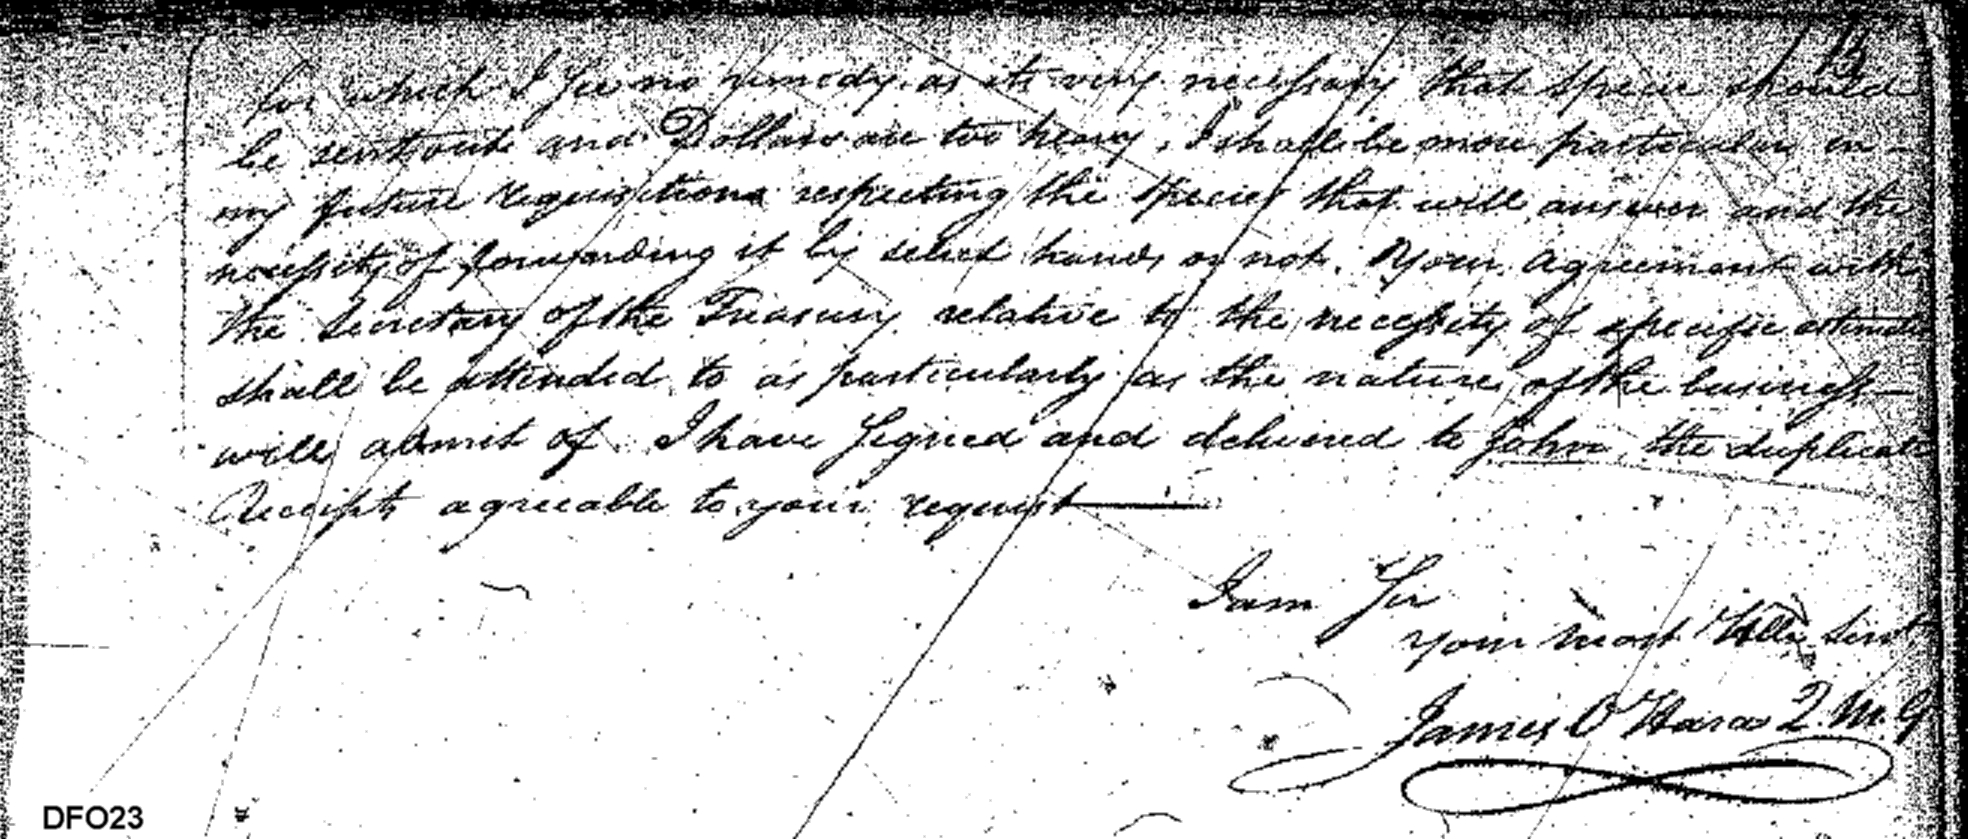 13
for which I See no remedy as its very necessary that Specie should
be sent out and Dollars are too heavy, I shall be more particular in
my future requisitions respecting the Species that will answer and the
necessity of forwarding it by select hands or not. Your agreement with
the Secretary of the Treasury relative to the necessity of specific estimates
shall be attended to as particularly as the nature of the business
will admit of. I have Signed and delivered to John the duplicate
Receipts agreeable to your request
I am Sir
your most Hble Servt
James O'Hara Q. M. G
DFO23